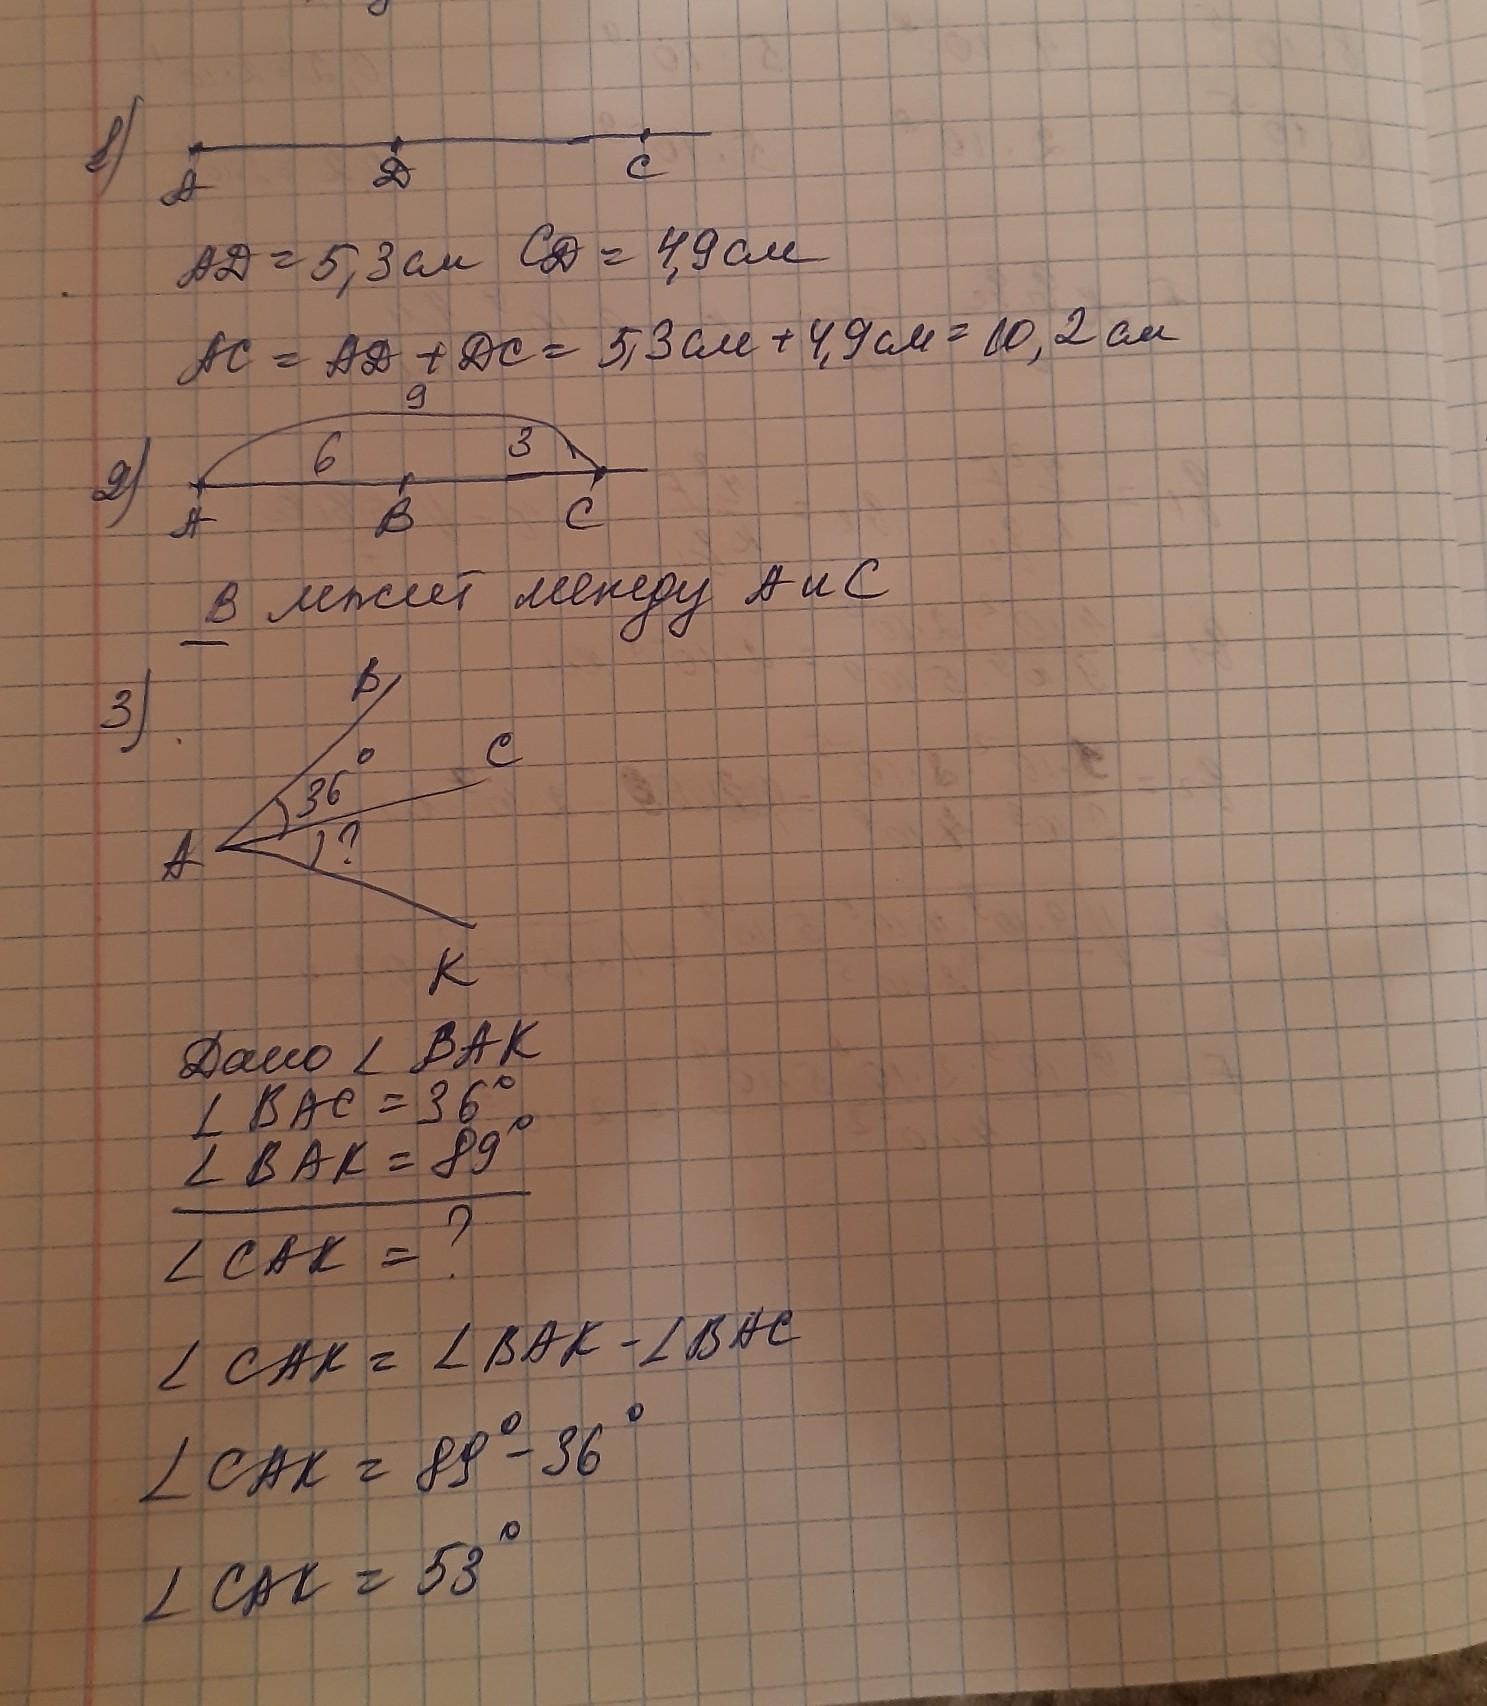 1)
A D C
AD = 5,3 см CD = 4,9 см
AC = AD + DC = 5,3 см + 4,9 см = 10,2 см
9
2) 6 3
A B C
B лежит между A и C
3)
B
C
36°
A ?
K
Дано ∠ BAK
∠ BAC = 36°
∠ BAK = 89°
∠ CAK = ?
∠ CAK = ∠ BAK - ∠ BAC
∠ CAK = 89° - 36°
∠ CAK = 53°